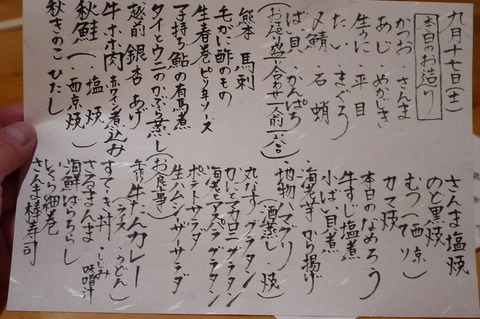 九月十七日(土)
本日のお造り
かつお ・さんま
あじ ・めかじき
生うに ・平目
たい ・まぐろ
〆鯖 ・石蛸
ばい貝 ・かんぱち
(お造り盛り合わせ 一人前
熊本 馬刺
毛がに酢のもの
生春巻ピリ辛ソース
子持ち鮎の有馬煮
タイとウニのかぶら蒸し
越前 銀杏あげ
牛ホホ肉 赤ワイン煮込み
秋鮭(塩焼 西京焼)
秋きのこひたし
さんま塩焼
のど黒焼
むつ(西京
カマ焼
本日のなめろう
牛すじ塩煮
小ばい貝煮
・海老芋 から揚げ
・地物ハマグリ(酒蒸し・焼)
丸なすグラタン
かにとマカロニグラタン
海老とアスパラグラタン
ポテトサラダ
生ハムシーザーサラダ
(お食事)
牛たんカレー(ライス うどん)
すてーき丼 ・しじみ味噌汁
さるさんま
海鮮ばらちらし
いくら細巻
さんま棒寿司